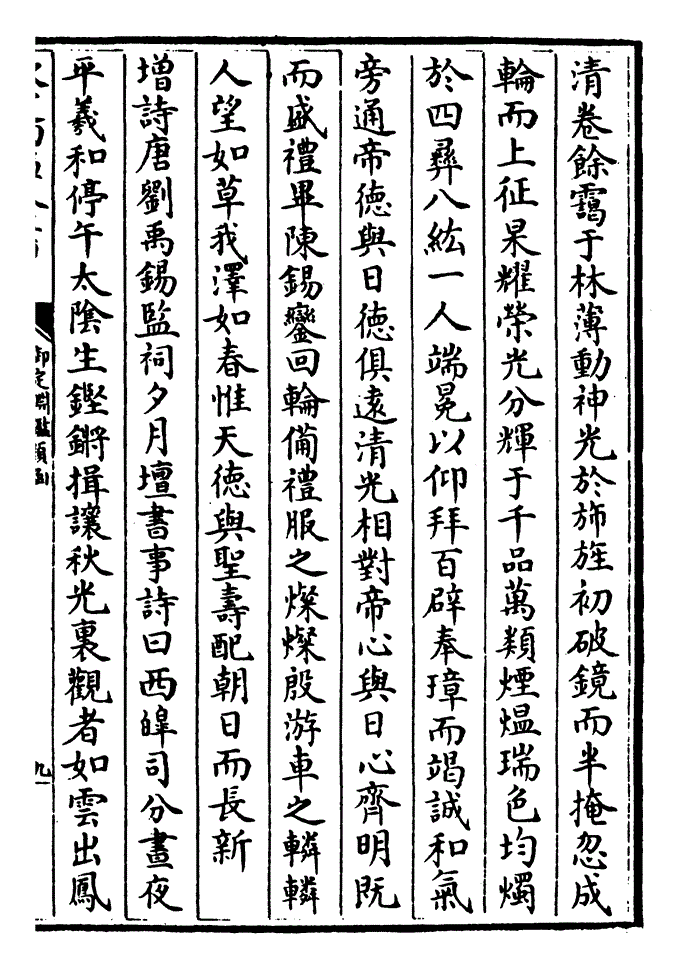 清卷餘靄于林薄動神光於斾旌初破鏡而半掩忽成
輪而上征杲耀榮光分輝于千品萬類煙熅瑞色均燭
於四彛八紘一人端冕以仰拜百辟奉璋而竭誠和氣
旁通帝德與日德俱遠清光相對帝心與日心齊明既
而盛禮畢陳錫鑾回輪備禮服之燦燦殷游車之轔轔
人望如草我澤如春惟天德與聖壽配朝日而長新
增詩唐劉禹錫監祠夕月壇書事詩曰西皥司分晝夜
平羲和停午太隂生鏗鏘揖讓秋光裏觀者如雲出鳳
御定淵鑑類函
九